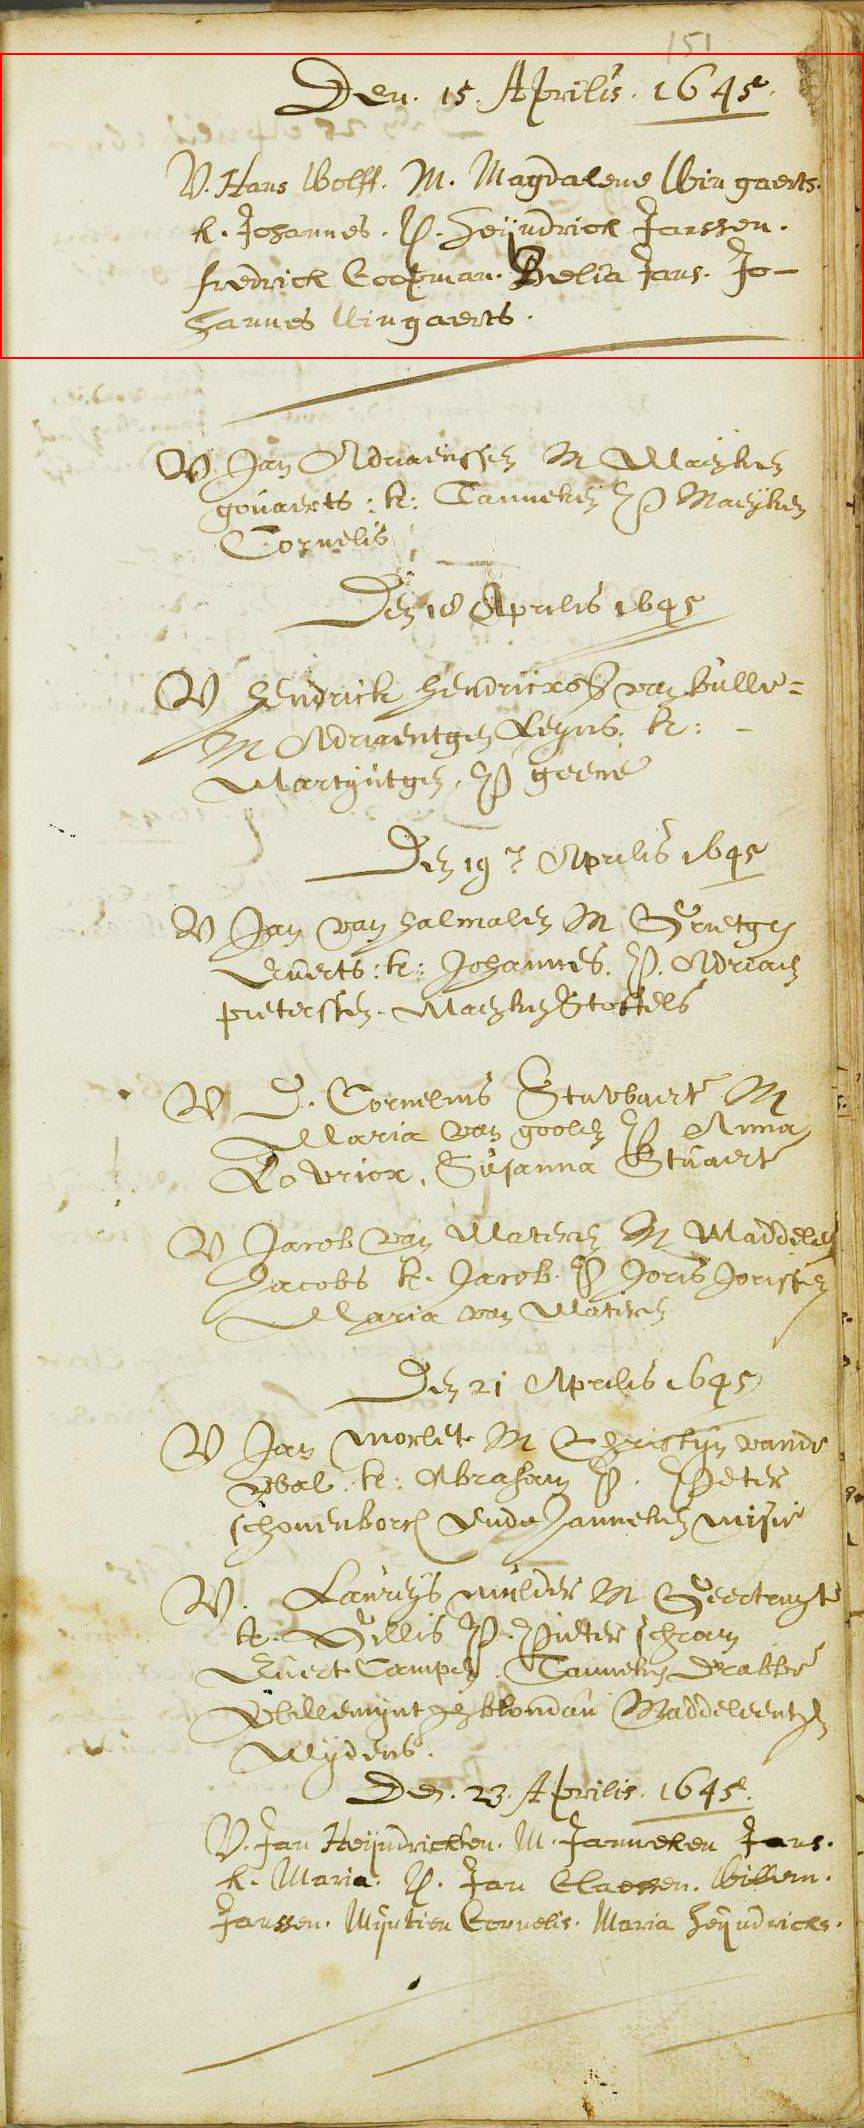 151
Den. 15. Aprilis. 1645.
V. Hans Wolff. M. Magdalene Wingaerts.
k. Johannes. P. Heijndrick Janssen.
fredrick Coopman. Belia Jans. Jo-
hannes Wingaerts.
V. Jan Adriaenssen M Maeyken
govaerts : k: Tanneken P Maeyken
Cornelis
Den 18 Aprilis 1645
V Hendrick Hendricxss van
M Adriaentgen Leyns. k: -
Martyntgen, P geene
Den 19 Aprilis 1645
V Jan van Halmalen M Grietgen
Everts : k: Johannes. P. Adriaen
pieterssen. Maeyken Stoffels
V D. Cornelius M
Maria van goolen P Anna
Susanna Stuaert
V Jacob van Materen M Maddelen
Jacobs k. Jacob. P Joris Jorissen
Maria van Materen
Den 21 Aprilis 1645
V Jan Morlet M Christyn vande
wal : k: Abraham P. Peter
schonenborch Ende Janneken
V. Laureys mulder M Geertruyt
k. Gillis P. Pieter schram
Evert Campen. Tanneken
Willemyntgen blondau Maddeleentgen
Wydens.
Den. 23. Aprilis. 1645.
V. Jan Heijndricksen. M. Janneken Jans.
k. Maria. P. Jan Claessen. Willem.
Janssen. Mijntien Cornelis. Maria Heijndricks.